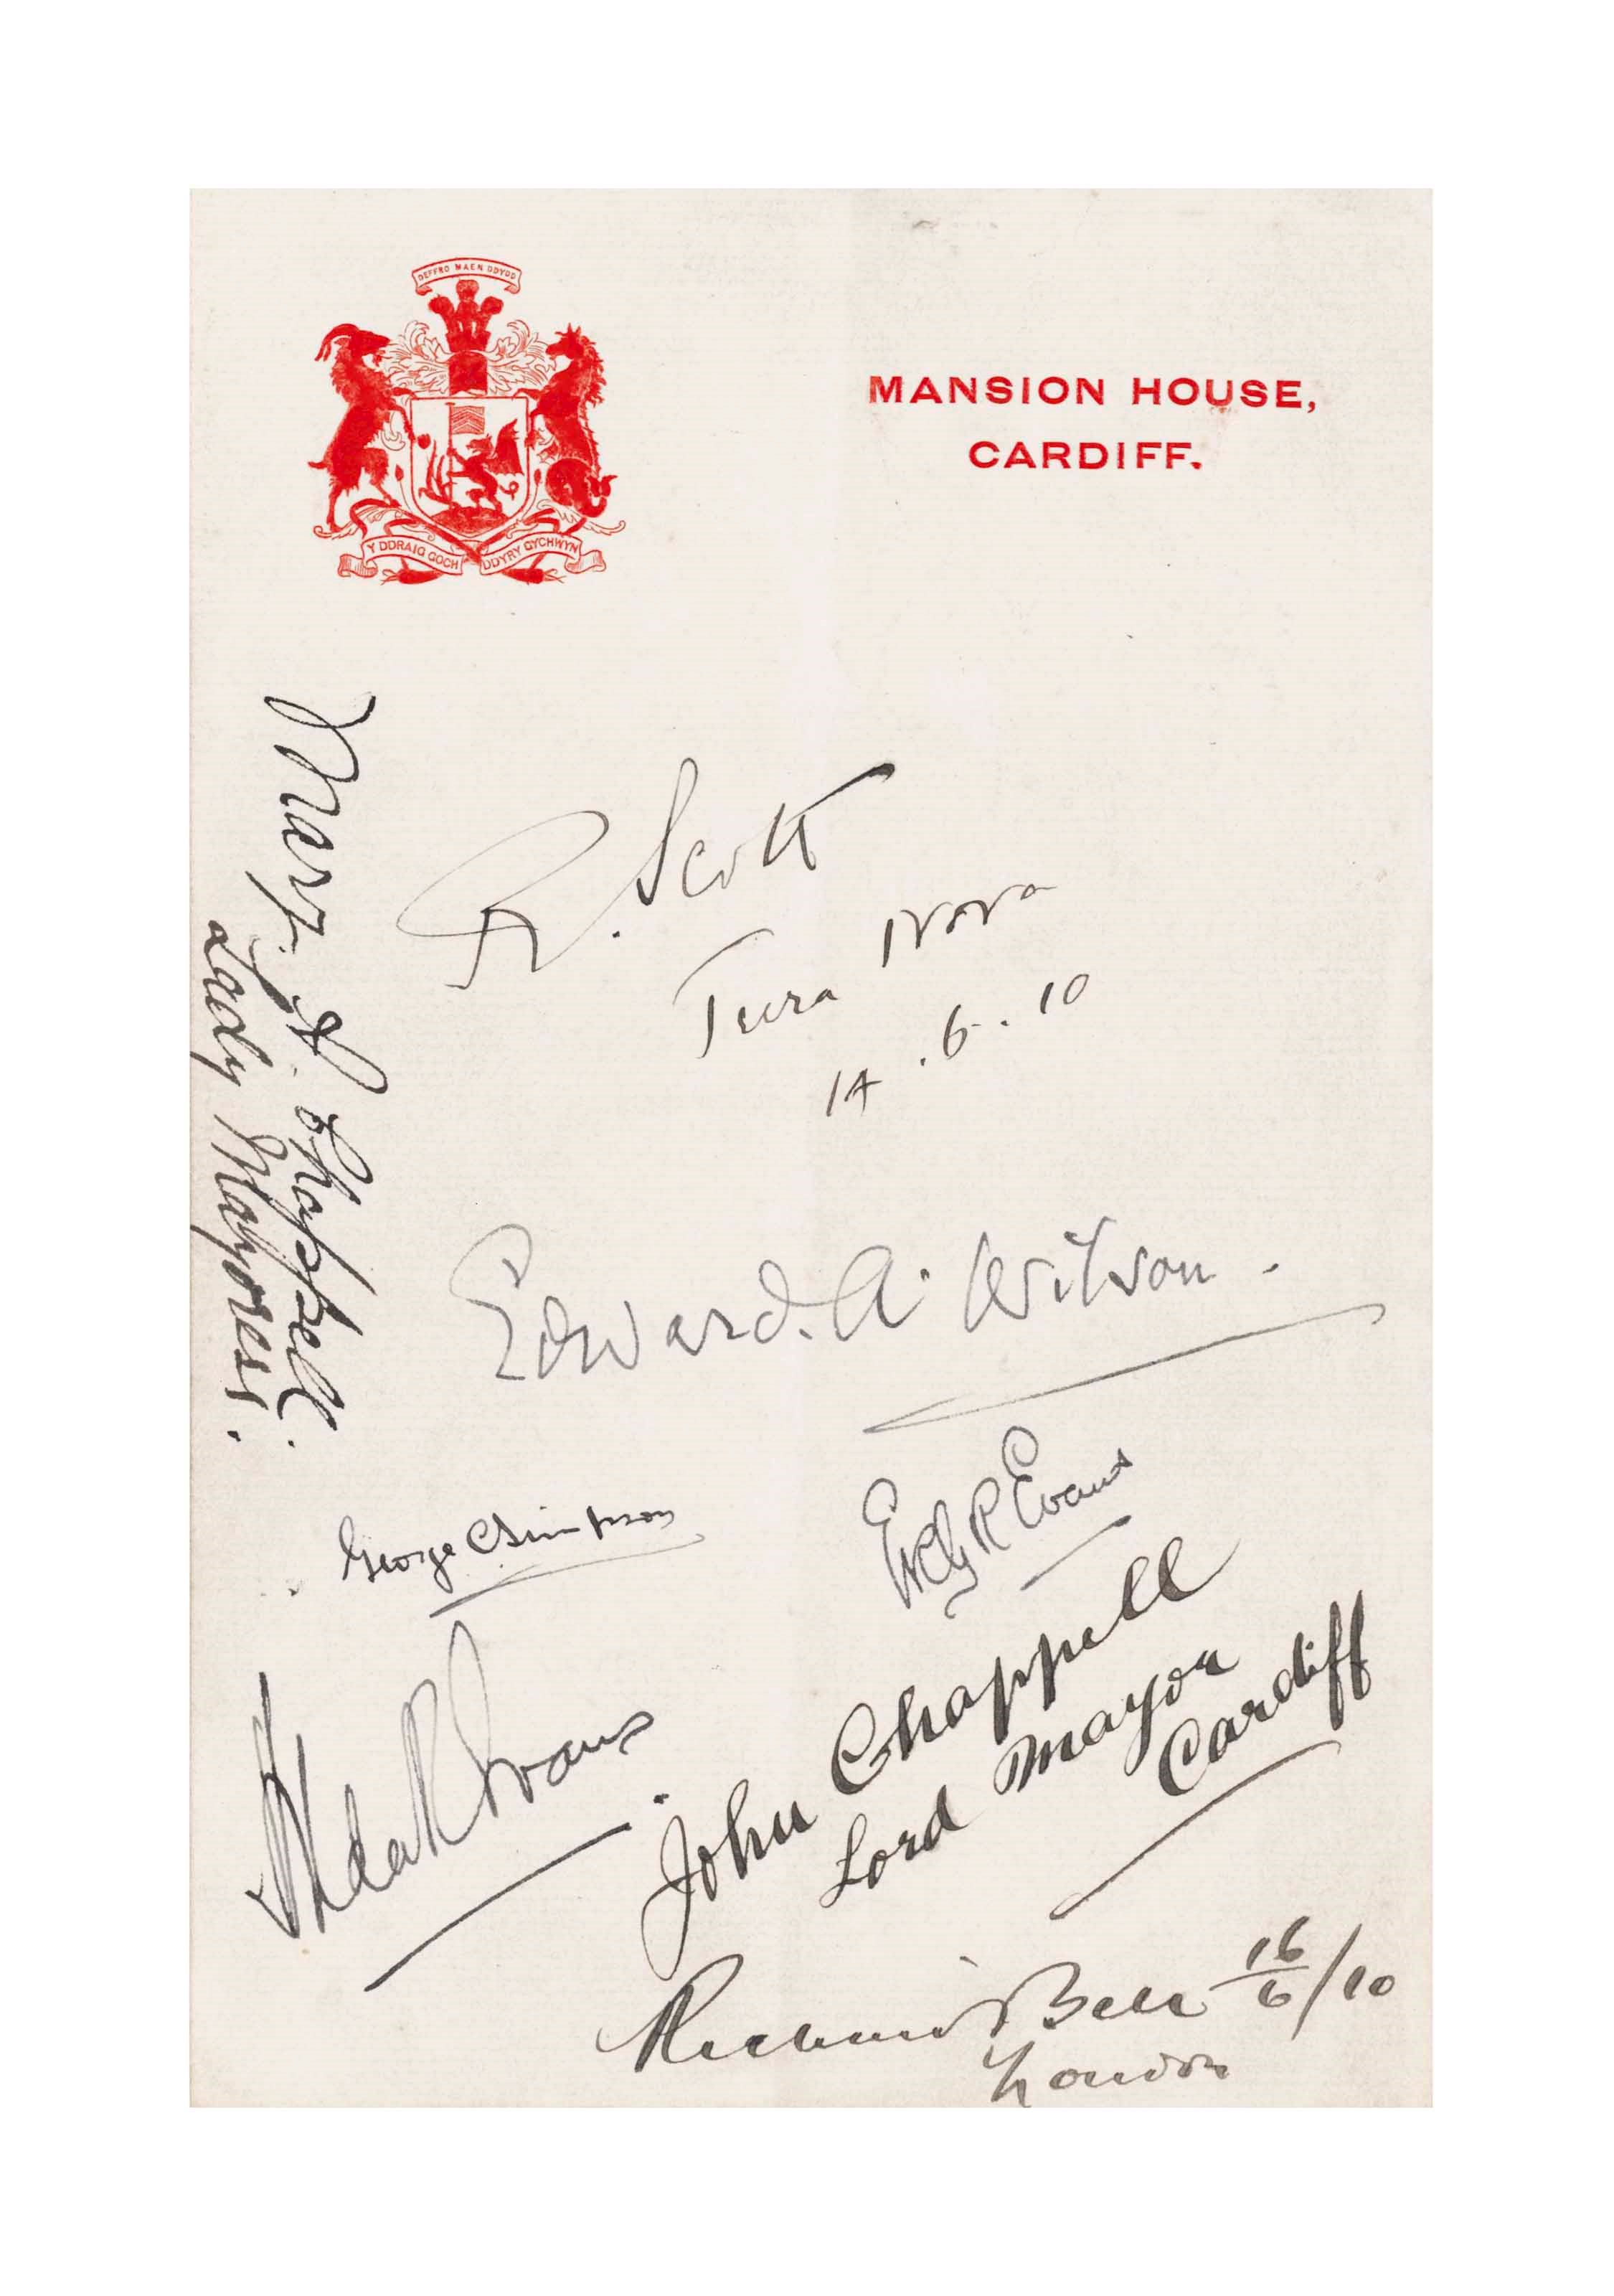 DEFFRO MAEN DDYDD
Y DDRAIG GOCH DDYRY GYCHWYN
MANSION HOUSE,
CARDIFF.
R. Scott
Terra Nova
14.6.10
Mary A. Chappell.
Lady Mayoress.
Edward. A. Wilson.
George C Simpson
R G R Evans
Hilda R Evans.
John Chappell
Lord Mayor
Cardiff
Richard Bell 16/6/10
London